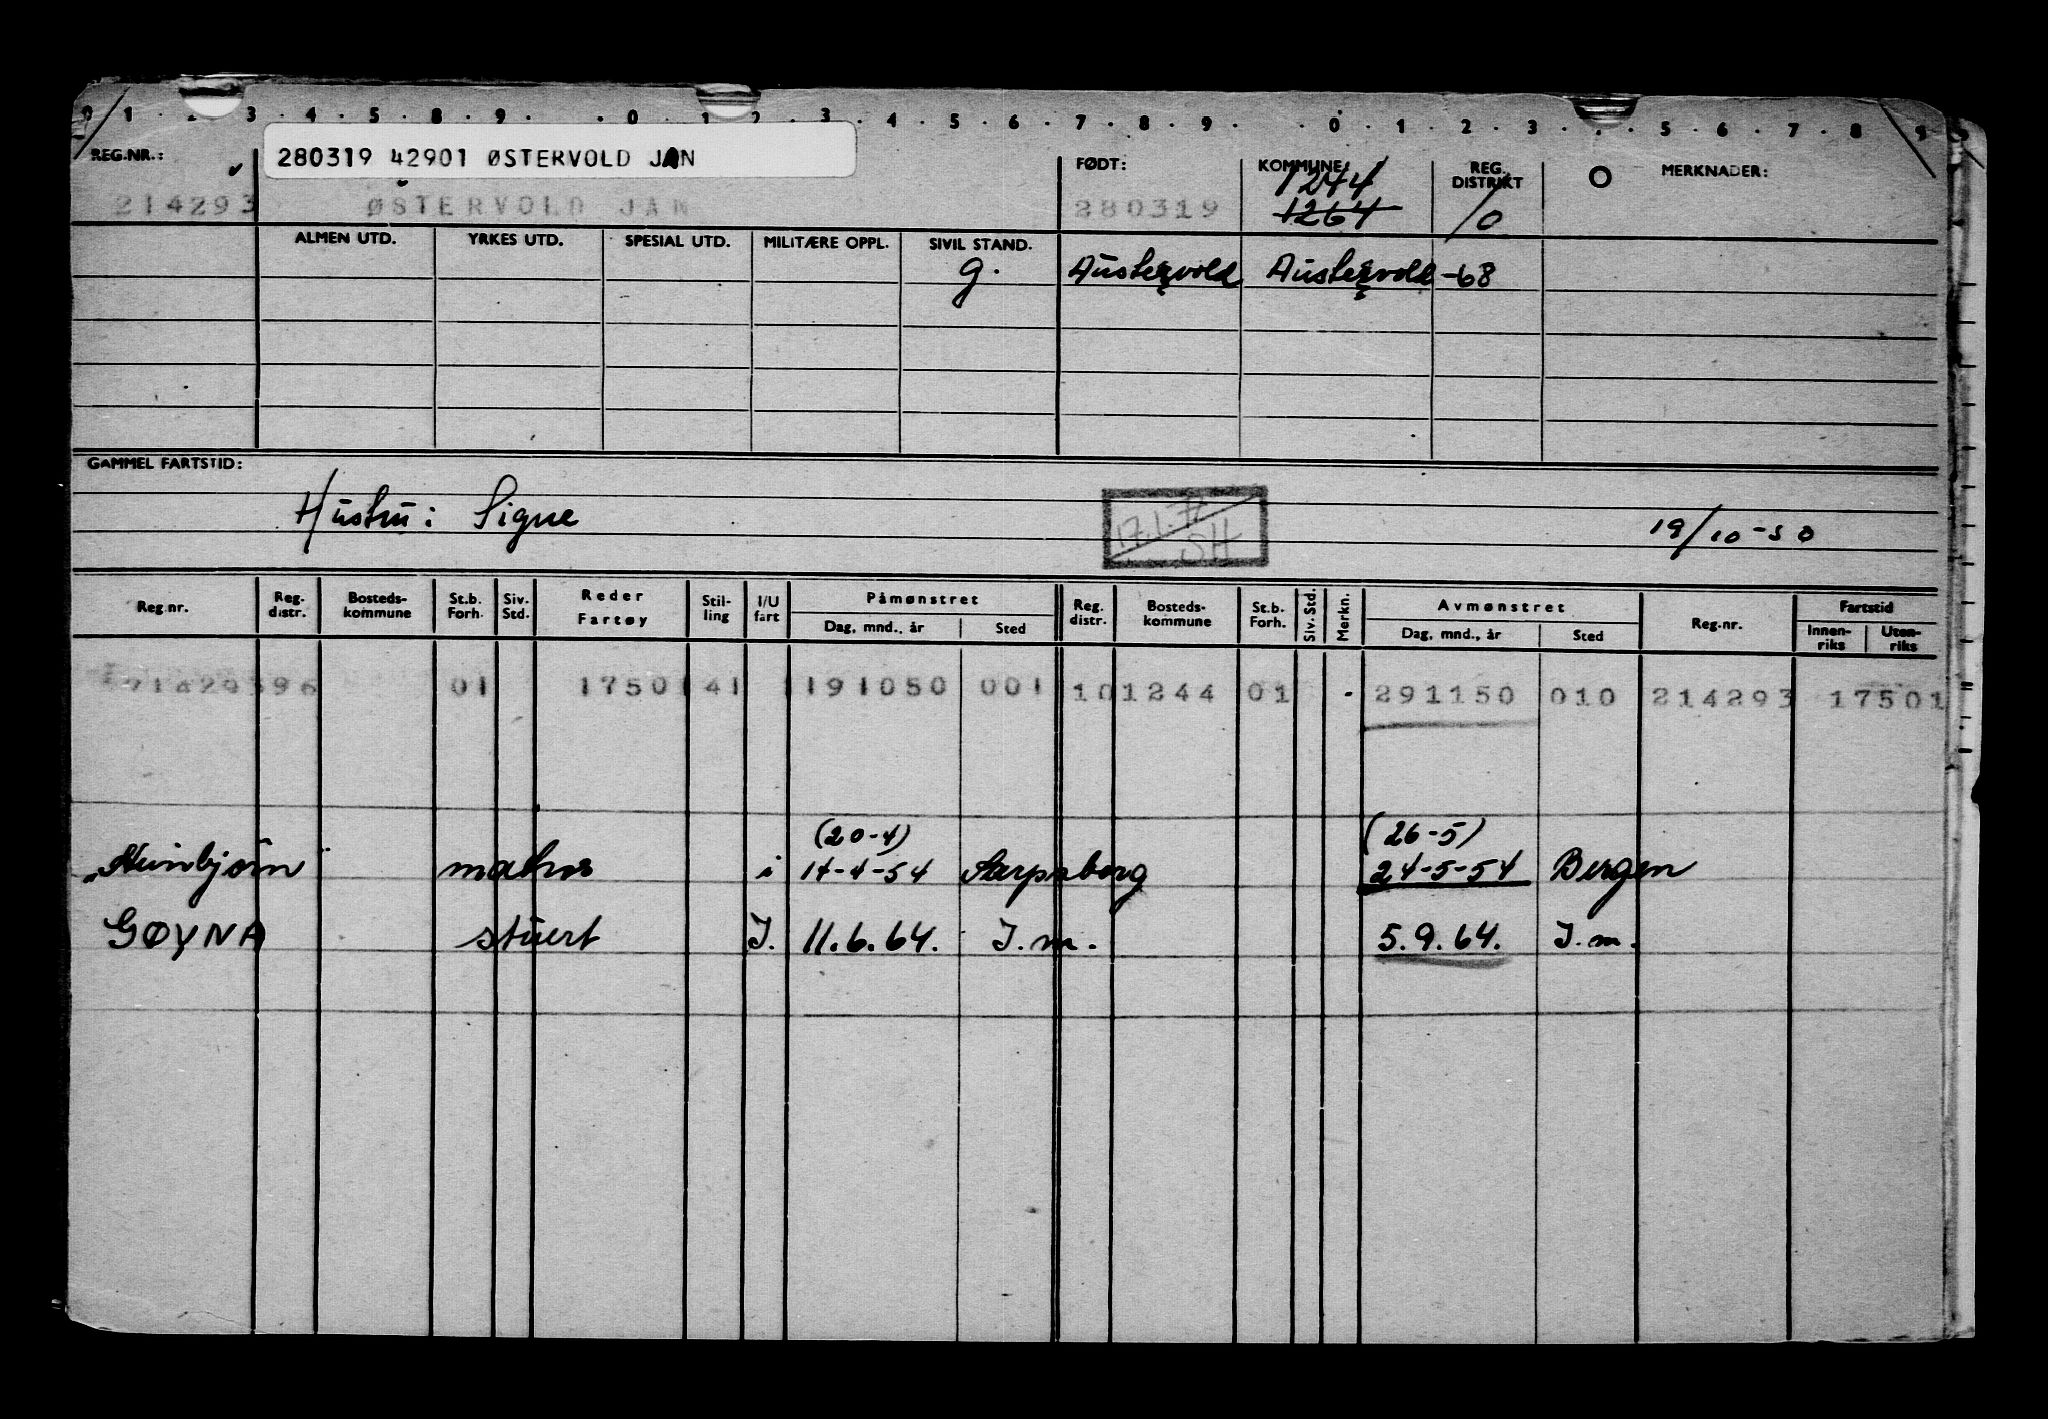 0 1 . 2 . 3 . 4 . 5 . 8 . 9 . . 0 . 1 . 2 . 3 . 4 . 5 . 6 . 7 . 8 . 9 . . 0 . 1 . 2 . 3 . . 5 . 6 . 7 . 8 . 9
280319 42901 ØSTERVOLD JAN
REG.NR.: FØDT: KOMMUNE: REG. DISTRIKT MERKNADER:
1244
214293 ØSTERVOLD JAN 280319 1264 10
ALMEN UTD. YRKES UTD. SPESIAL UTD. MILITÆRE OPPL. SIVIL STAND.
g. Austervold Austervoll -68
GAMMEL FARTSTID:
Hustru: Signe
17.1.72
SH
19/10-50
Reg.nr. Reg. distr. Bosteds-kommune St.b. Forh. Siv. Std. Reder Fartøy Stil-ling I/U fart Påmønstret Reg. distr. Bosteds-kommune St.b. Forh. Siv. Std. Merkn. Avmønstret Reg.nr. Fartstid
Dag, mnd., år Sted Dag, mnd., år Sted Innen-riks Uten-riks
01 17501 41 191050 001 10 1244 01 291150 010 214293 17501
(20-4) (26-5)
matros i 14-4-54 Sarpsborg 24-5-54 Bergen
GØYNA stuert I. 11.6.64. I.m. 5.9.64. I.m.